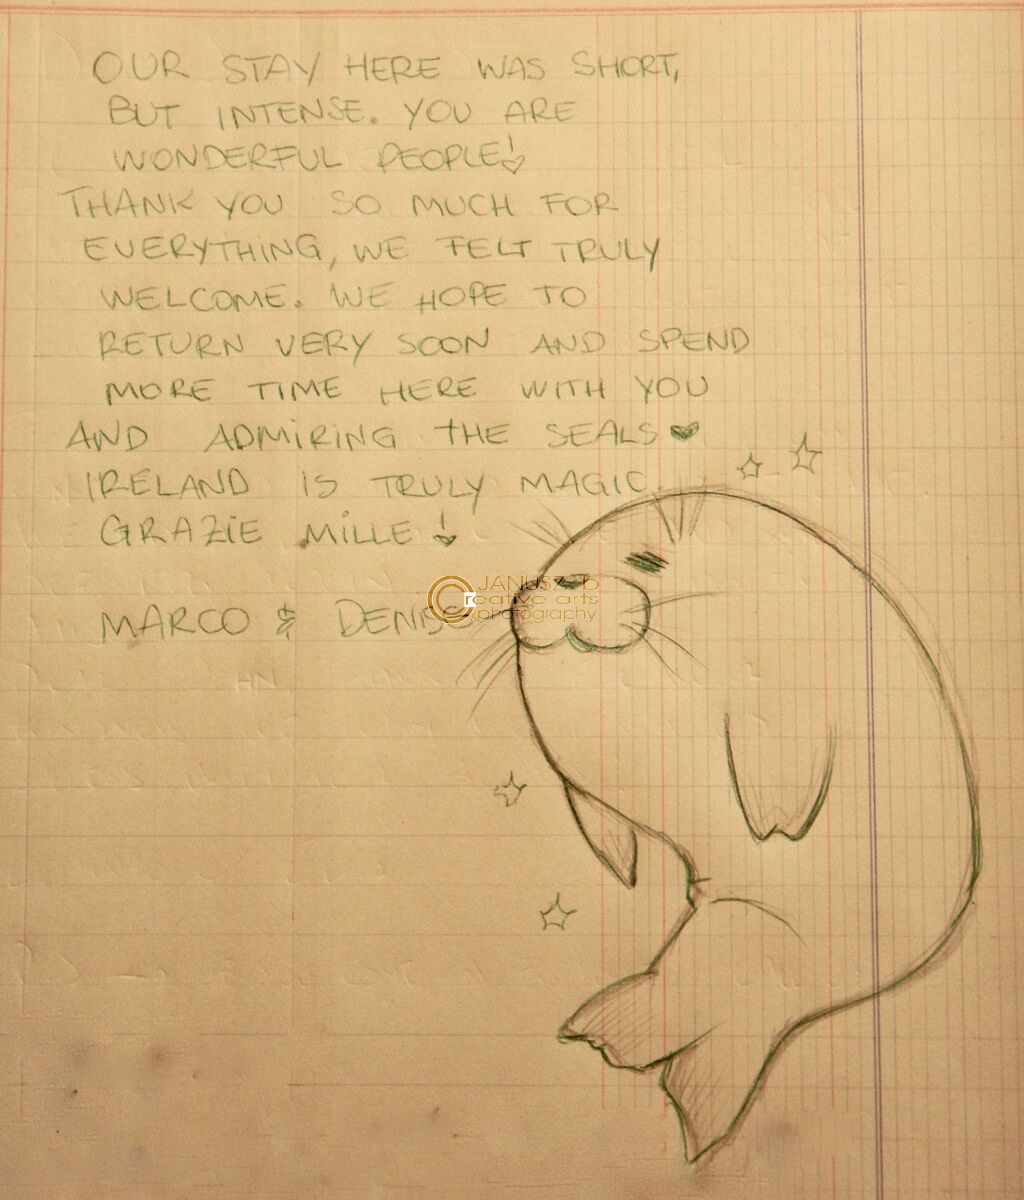 OUR STAY HERE WAS SHORT,
BUT INTENSE. YOU ARE
WONDERFUL PEOPLE!
THANK YOU SO MUCH FOR
EVERYTHING, WE FELT TRULY
WELCOME. WE HOPE TO
RETURN VERY SOON AND SPEND
MORE TIME HERE WITH YOU
AND ADMIRING THE SEALS ♥
IRELAND IS TRULY MAGIC.
GRAZIE MILLE!
MARCO & DENISE
JANUSZ b
creative arts
photography